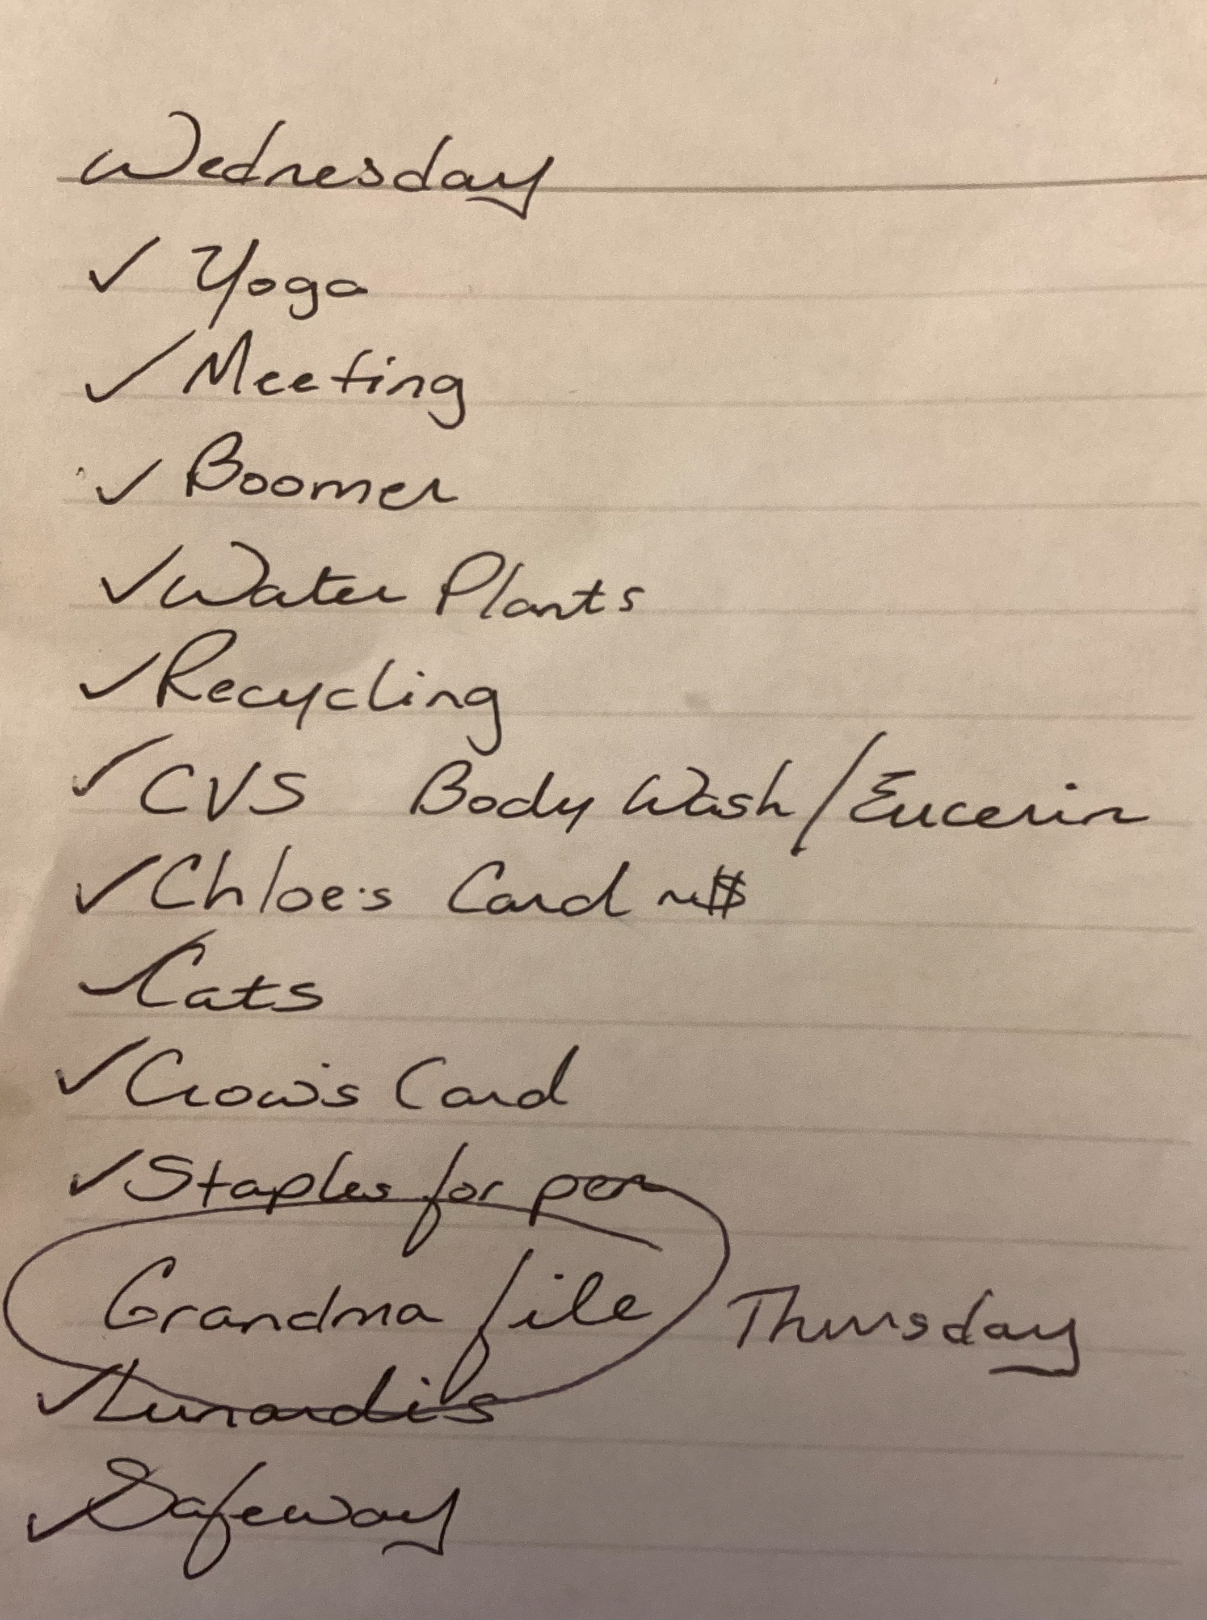 Wednesday
✓ Yoga
✓ Meeting
✓ Boomer
✓ Water Plants
✓ Recycling
✓ CVS Body Wash/Eucerin
✓ Chloe's Card $
✓ Cats
✓ Crow's Card
✓ Staples for pen
Grandma file Thursday
✓ Lunardi's
✓ Safeway